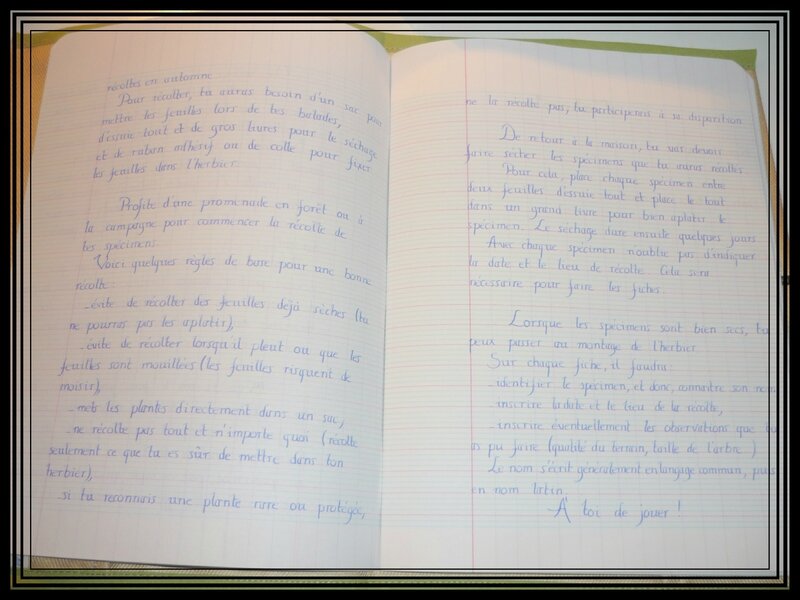 récoltes en automne
Pour récolter, tu auras besoin d'un sac pour
mettre les feuilles lors de tes balades,
d'essuie tout et de gros livres pour le séchage
et de ruban adhésif ou de colle pour fixer
les feuilles dans l'herbier.
Profite d'une promenade en forêt ou à
la campagne pour commencer la récolte de
tes spécimens
Voici quelques règles de base pour une bonne
récolte :
-évite de récolter des feuilles déjà sèches (tu
ne pourras pas les aplatir),
-évite de récolter lorsqu'il pleut ou que les
feuilles sont mouillées (les feuilles risquent de
moisir),
-mets les plantes directement dans un sac,
-ne récolte pas tout et n'importe quoi (récolte
seulement ce que tu es sûr de mettre dans ton
herbier),
-si tu reconnais une plante rare ou protégée,
ne la récolte pas, tu participerais à sa disparition
De retour à la maison, tu vas devoir
faire sécher les spécimens que tu auras récoltés.
Pour cela, place chaque spécimen entre
deux feuilles d'essuie tout et place le tout
dans un grand livre pour bien aplatir le
spécimen. Le séchage dure ensuite quelques jours
Avec chaque spécimen n'oublie pas d'indiquer
la date et le lieu de récolte. Cela sera
nécessaire pour faire les fiches.
Lorsque les spécimens sont bien secs, tu
peux passer au montage de l'herbier
Sur chaque fiche, il faudra :
-identifier le spécimen, et donc, connaître son nom
-inscrire la date et le lieu de la récolte,
-inscrire éventuellement les observations que tu
as pu faire (qualité du terrain, taille de l'arbre )
Le nom s'écrit généralement en langage commun, puis
en nom latin.
A toi de jouer !